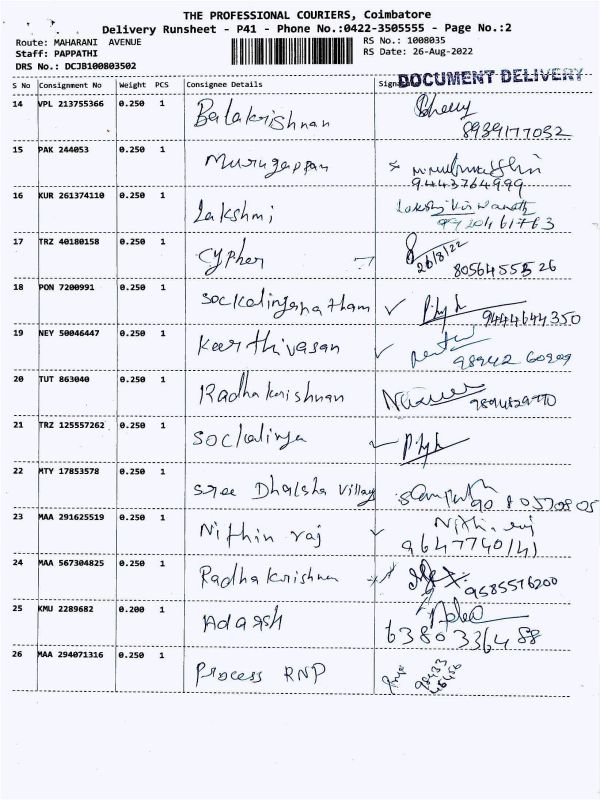 THE PROFESSIONAL COURIERS, Coimbatore
Delivery Runsheet - P41 - Phone No.:0422-3505555 - Page No.:2
Route: MAHARANI AVENUE RS No.: 1008035
Staff: PAPPATHI RS Date: 26-Aug-2022
DRS No.: DCJB100803502
DOCUMENT DELIVERY
S No Consignment No Weight PCS Consignee Details
14 VPL 213755366 0.250 1 Balakrishnan
8939177032
15 PAK 244053 0.250 1 Murugappan
9443764999
16 KUR 261374110 0.250 1 Lakshmi
17 TRZ 40180158 0.250 1 Cypher
26/8/22
18 PON 7200991 0.250 1
9444644350
19 NEY 50046447 0.250 1 Keerthivasan
20 TUT 863040 0.250 1 Radhakrishnan
21 TRZ 125557262 0.250 1 Sockalinga
22 MTY 17853578 0.250 1 Sree
23 MAA 291625519 0.250 1 Nithin raj
Nithin raj
9647740141
24 MAA 567304825 0.250 1
9585576200
25 KMU 2289682 0.200 1 Adarsh
26 MAA 294071316 0.250 1 Process RNP